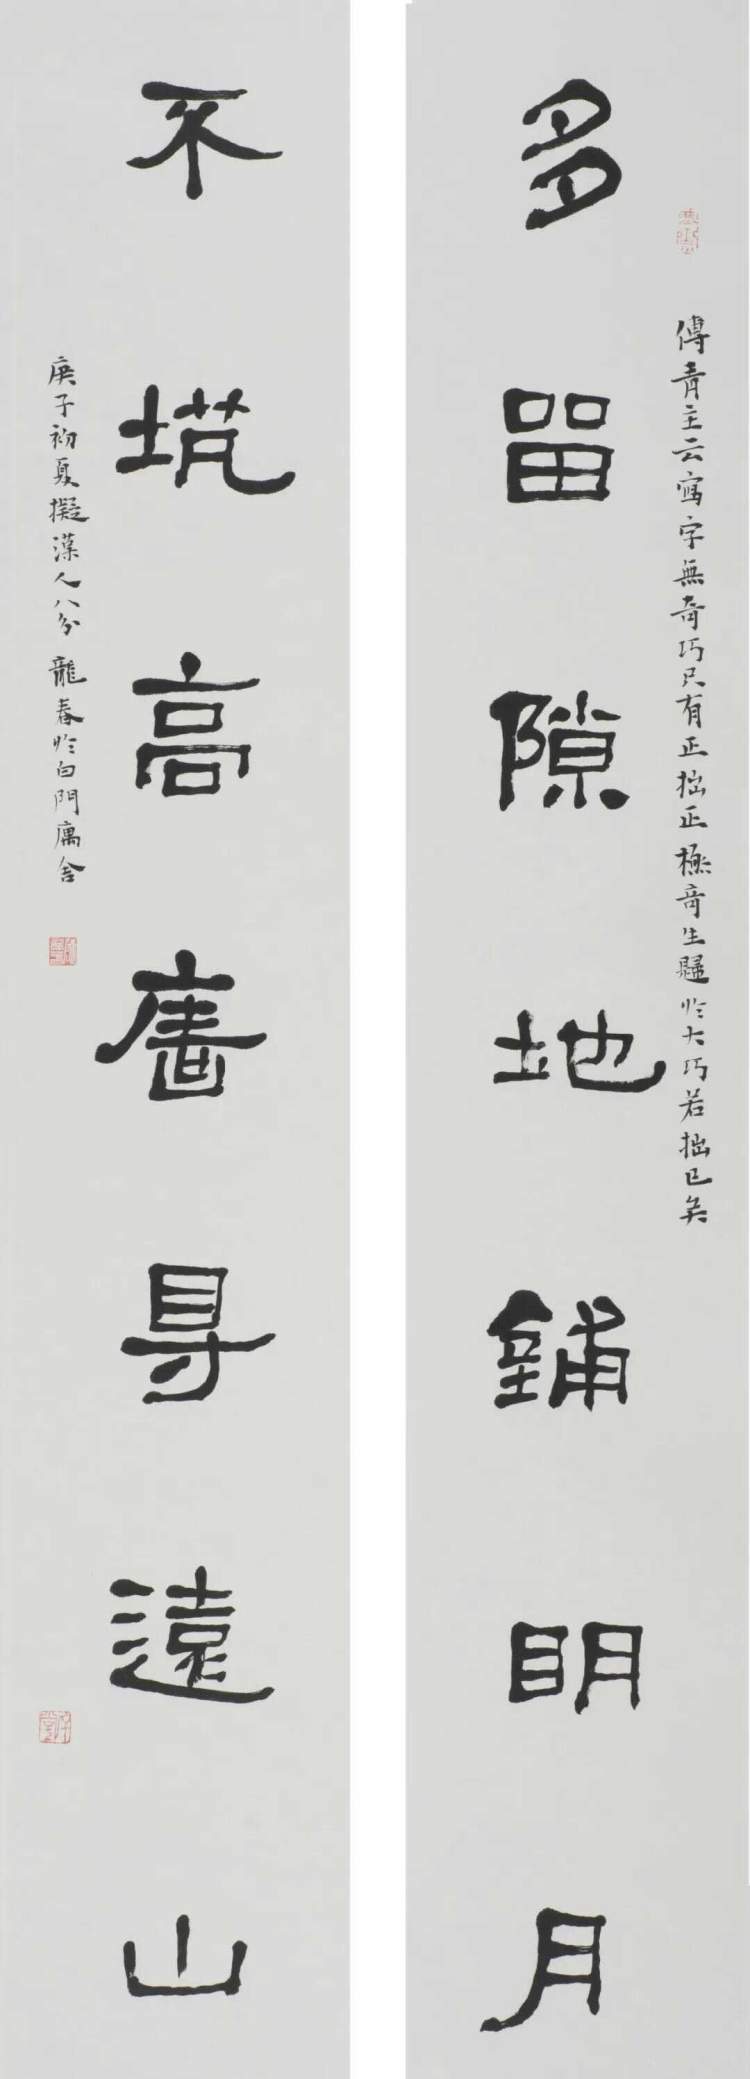 傅青主云寫字無奇巧只有正拙正極奇生歸於大巧若拙已矣
多留隙地鋪明月
不筑高牆得遠山
庚子初夏擬漢人八分龍春於白門寓舍